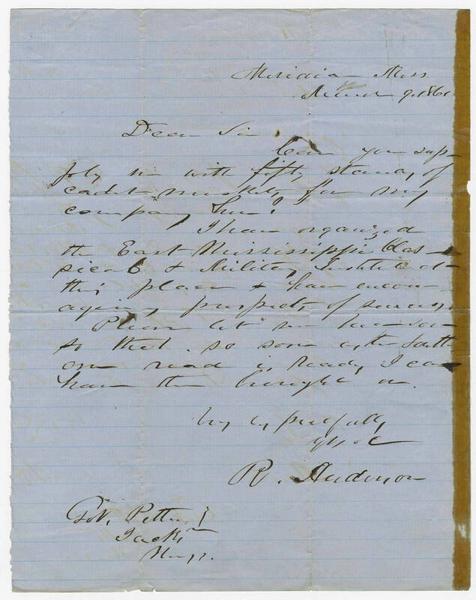 Meridian Miss
9 1861
Dear Sir
Can you sup-
ply me with fifty stands of
cadet muskets for my
company here?
I have organized
the East Mississippi Clas-
sical & Military Institute at
this place & have encour-
aging prospects of success.
Please let me know soon
so that so soon as the South
ern road is ready, I can
have them brought on.
Very respectfully,
Yrs &c
R. Anderson
Gov. Pettus
Jackson
Miss.